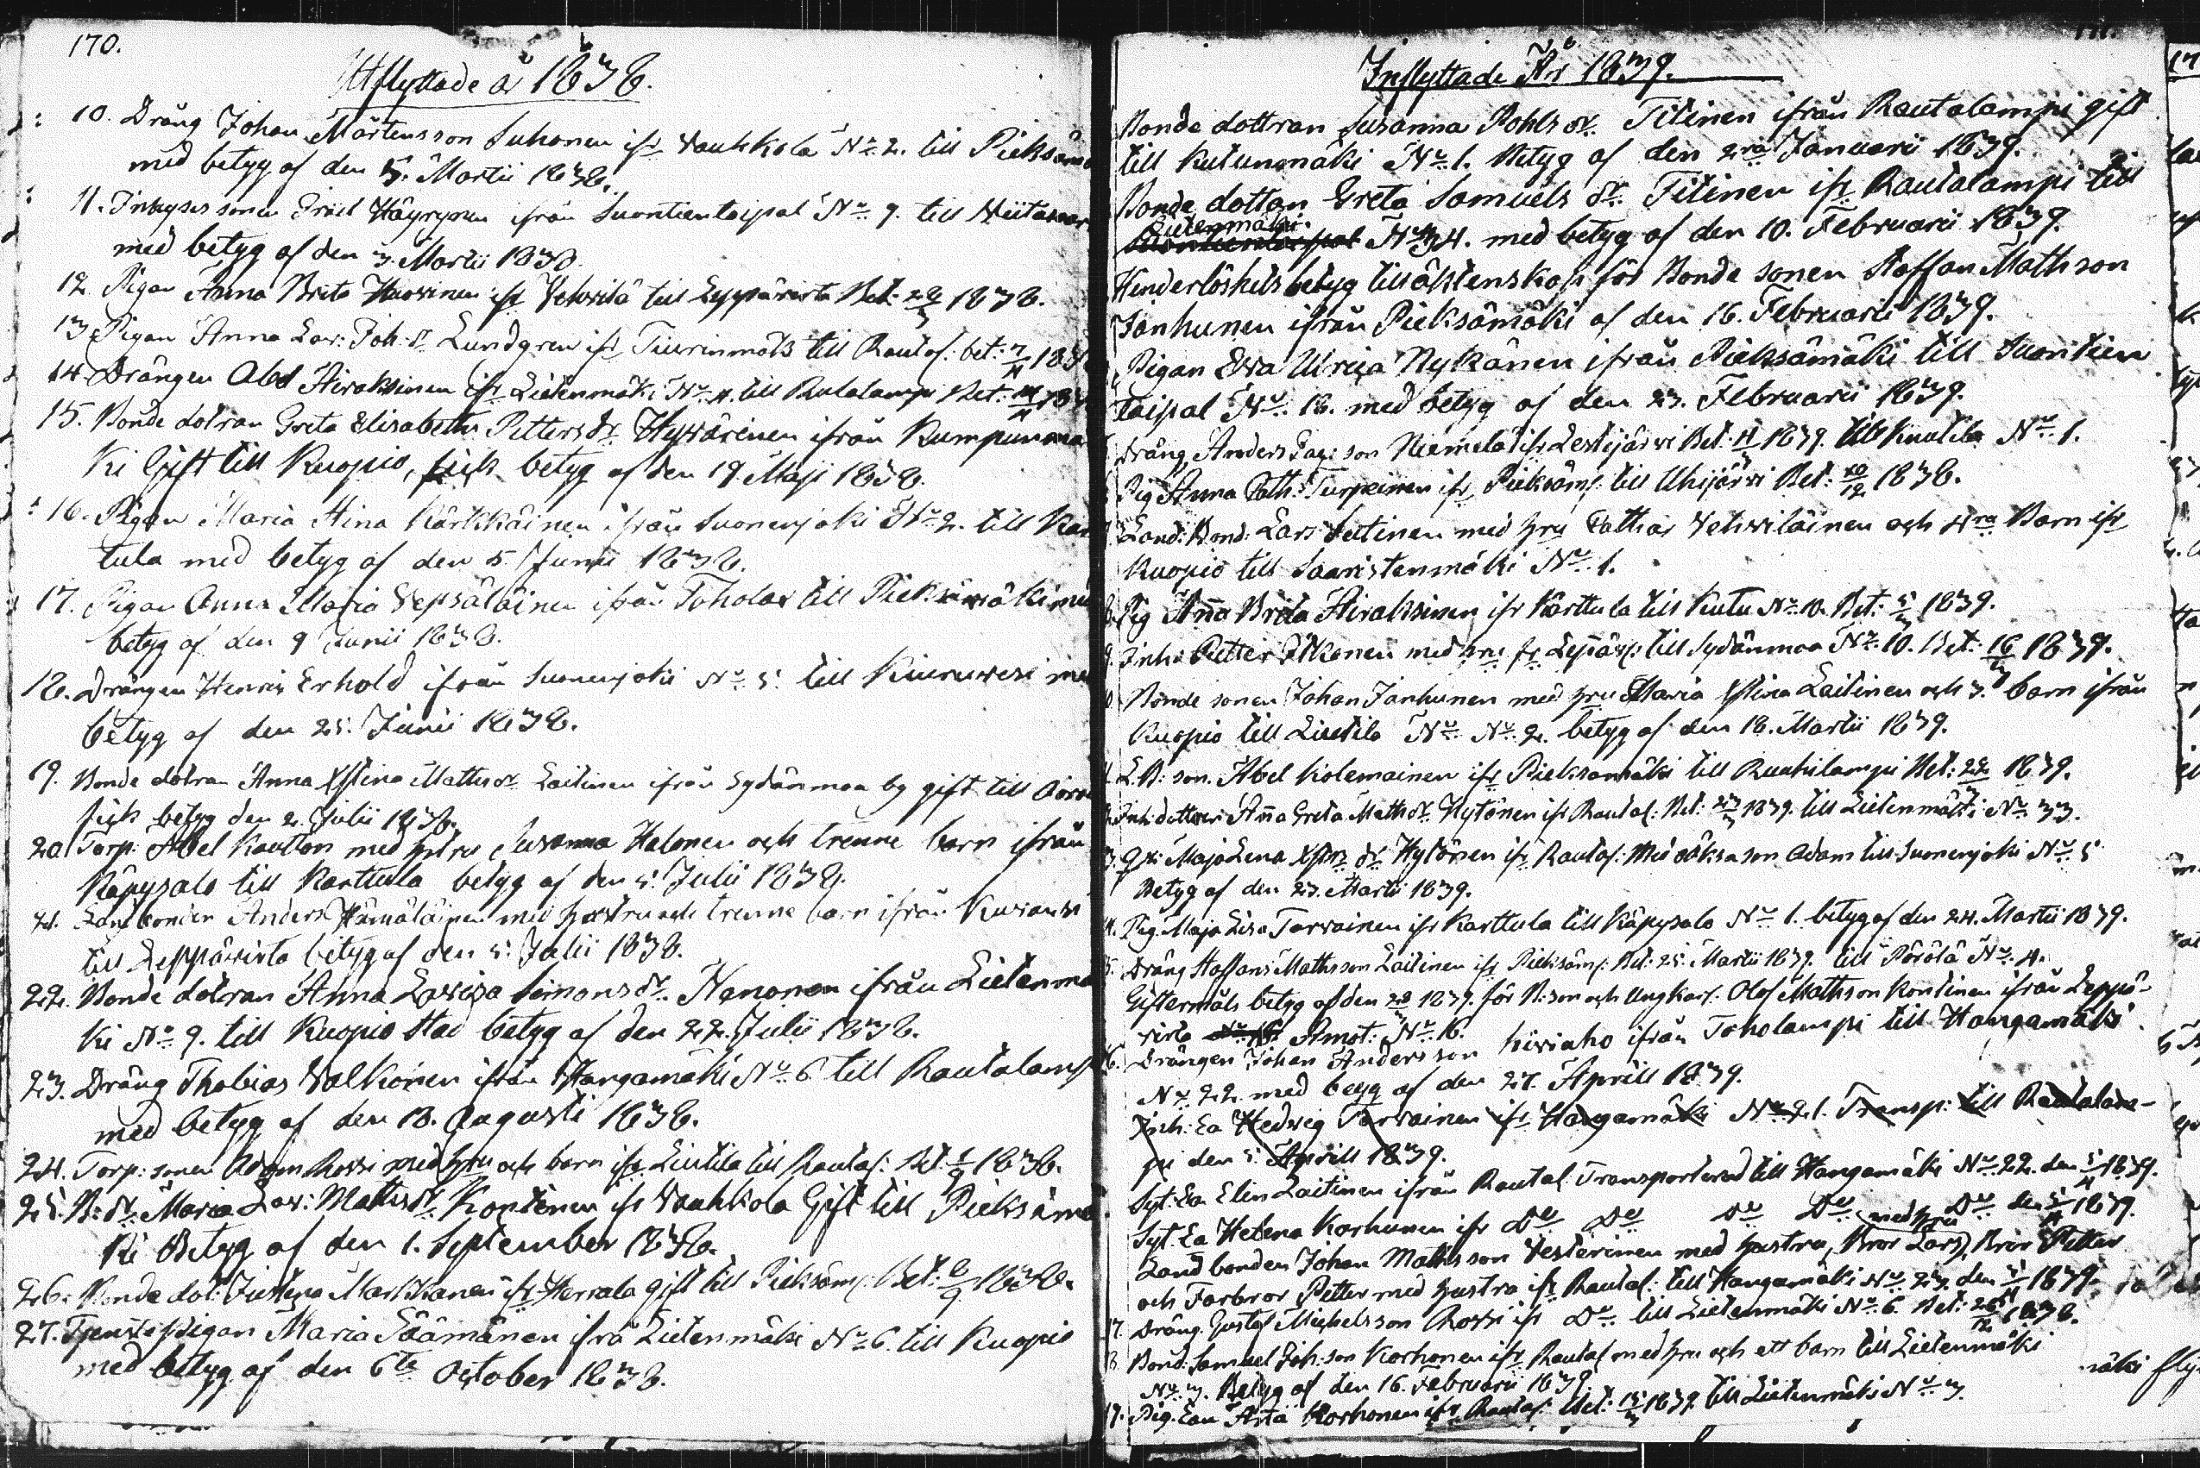 170.
Utflyttade år 1838.
10. Dräng Johan Mårtensson Suhonen ifr Vauhkola No 2. till Pieksäm
med betyg af den 5. Martii 1838.
11. Inhyses sonen Häyrynen ifrån Suontientaipal No 9. till Wiitasaar
med betyg af den 3. Martii 1838.
12. Pigan Anna Brita Huovinen ifr Vehvilä till Leppävirta Bet: 28/3 1838.
13. Pigan Anna Lov: Joh: dr Lundgren ifr Tiurinmäki till Rautal: bet: 7/4 183
14. Drängen Abel Hirvaksinen ifr Lietenmäki No 4. till Rutalampi Bet: 183
15. Bonde dotran Greta Elisabetha Petters dr Hyvärinen ifrån Kumpunmä
ki Gift till Kuopio, fick betyg af den 19. Maji 1838.
16. Pigan Maria Stina Kärkkäinen ifrån Suonenjoki No 2. till Kar
tula med betyg af den 5. Junii 1838.
17. Pigan Anna Maria Vepsäläinen ifrån Toholax till Pieksämäki med
betyg af den 9 Junii 1838.
18. Drängen Henric Erhold ifrån Suonenjoki No 5. till Kiuruvesi me
betyg af den 25. Junii 1838.
19. Bonde dotran Anna Xstina Matths dr Laitinen ifrån Sydänmaa by gift till
fick betyg den 2. Julii 1838.
20. Torp: Abel Kautton med hstru Susanna Halonen och trenne barn ifrån
Käpysalo till Karttula betyg af den 5. Julii 1838.
21. Landbonden Anders Hämäläinen med hustru och trenne barn ifrån
till Leppävirta betyg af den 5. Julii 1838.
22. Bonde dotran Anna Lovisa Simons dr Nenonen ifrån Lietenmä
ki No 9. till Kuopio stad betyg af den 22. Julii 1838.
23. Dräng Thobias Valkonen ifrån Hangamäki No 6 till Rautalamp
med betyg af den 18. Augusti 1838.
24. Torp: sonen Adam Rossi med hru och barn ifr Liutila till Rautal: Bet. 1/9 1838.
25. B: dr Maria Lov: Matths dr Kontinen ifr Vauhkola Gift till Pieksämä
ki Betyg af den 1. September 1838.
26. Bonde dot: Markkanen ifr Herrala gift till Pieksäm: Bet: 8/9 1838.
27. Tjenstepigan Maria Säämänen ifrå Lietenmäki No 6. till Kuopio
med betyg af den 6te October 1838.
171.
Inflyttade År 1839.
Bonde dottran Susanna Pohls dr. Titinen ifrån Rautalampi gift
till Kutunmäki No 1. Betyg af den 2ra Januarii 1839.
Bonde dottan Greta Samuels dr. Titinen ifr Rautalampi till
Lietenmäki.
Suontientaipal No 34. med betyg af den 10. Februarii 1839.
Hinderlöshets betyg till äktenskap för Bonde sonen Staffan Mathson
Janhunen ifrån Pieksämäki af den 16. Februarii 1839.
Pigan Ewa Ulrica Nykänen ifrån Pieksämäki till Suontien
taipal No 18. med betyg af den 23. Februarii 1839.
Dräng Anders son Niemelä ifr Lestijärvi Bet: 1839. till Kuutila No 1.
Pig Anna Cath: Turpeinen ifr Pieksäm: till Uhijärvi Bet: 20/12 1838.
Land: Bond: Lars Sutinen med hru Catha: Vehviläinen och 4ra Barn ifr
Kuopio till Saaristenmäki No 1.
Pig Anna Brita Hirvaksinen ifr Karttula till Kutu No 10. Bet: 5/3 1839.
9. Inh: Petter Itkonen med hru fr Leppäv: till Sydänmaa No 10. Bet: 16/3 1839.
Bonde sonen Johan Janhunen med hru Maria Xstina Laitinen och 3. barn ifrån
Kuopio till Liutila No No 2. betyg af den 18. Martii 1839.
L.B: son. Abel Kolemainen ifr Pieksämäki till Ruuhilampi Bet: 22/3 1839.
Inh: dottren Anna Greta Maths dr. Hytönen ifr Rautal: Bet: 23/3 1839. till Lietenmäki No 33.
Q:x: Maja Lena Xstns dr Hytönen ifr Rautal: Med oäkta son Adam till Suonenjoki No 5
Betyg af den 23. Martii 1839.
Pig. Maja Lisa Tarvainen ifr Karttula till Käpysalo No 1. betyg af den 24. Martii 1839.
Dräng Staffan Mathsson Laitinen ifr Pieksäm: Bet: 25. Martii 1839. till Pörölä No 4.
Giftermåls betyg af den 28/3 1839. för B: son och Ungkarl. Olof Mathson Kontinen ifrån Leppä-
virta No 16. Amot: No 16.
Drängen Johan Andersson Kiviaho ifrån Toholampi till Hangamäki
No 22. med betyg af den 27. Aprill 1839.
Inh: Ea Hedvig Tarvainen ifr Hangamäki No 21. Transp: till Rautalam-
pi den 5. Aprill 1839.
Syt: Ea Elin Laitinen ifrån Rautal. Transporterad till Hangamäki No 22. den 5/4 1839.
Syt. Ea Helena Korhunen ifr Do Do Do Do Do den 5/4 1839.
med hru
Landbonden Johan Mathsson Vesterinen med hustru, Bror Lars, Bror Petter
och Farbror Petter med hustru ifr Rautal: till Hangamäki No 23 den 5/4 1839.
17. Dräng. Gustaf Michelsson Rossi ifr Do till Lietenmäki No 6 Bet: 26/12 1838.
Bond: Samuel Joh: son Korhonen ifr Rautal med hru och ett barn till Lietenmäki
No 3. Betyg af den 16. Februarii 1839.
19. Pig. Ea Korhonen ifr Rautal: Bet: 15/3 1839 till Lietenmäki No 3.